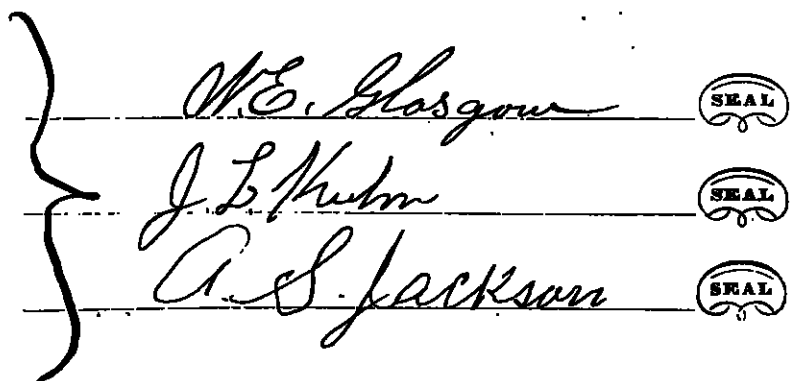 W.E. Glasgow SEAL
J L Kuhn SEAL
A. S. Jackson SEAL